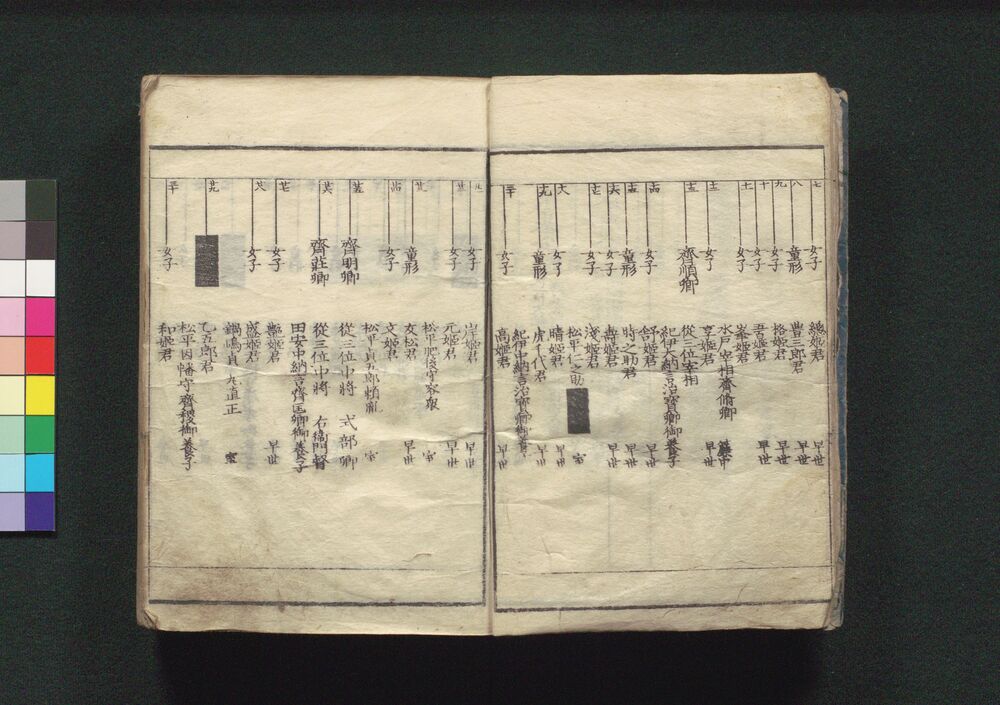 七
女子
綾姫君 早世
八
童形
豊三郎君 早世
九
女子
格姫君 早世
十
女子
吾姫君 早世
十一
女子
峯姫君
水戸宰相齊脩卿 簾中
十二
女子
亨姫君 早世
十三
齊順卿
從三位宰相
紀伊大納言治寶卿御養子
十四
女子
舒姫君 早世
十五
童形
時之助君 早世
十六
女子
壽姫君 早世
十七
女子
淺姫君
松平仁之助 室
十八
女子
晴姫君 早世
十九
童形
虎千代君 早世
紀伊中納言治寶卿御養子
二十
女子
高姫君 早世
廿一
女子
岸姫君 早世
廿二
女子
元姫君 早世
松平肥後守容衆 室
廿三
童形
友松君 早世
廿四
女子
文姫君
松平貞五郎頼胤 室
廿五
齊明卿
從三位中將 式部卿
廿六
齊莊卿
從三位中將 右衛門督
田安中納言齊匡卿御養子
廿七
女子
艶姫君 早世
廿八
女子
盛姫君
鍋嶋貞丸直正 室
廿九
乙五郎君
松平因幡守齊稷御養子
三十
女子
和姫君